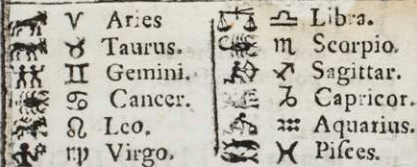 ♈ Aries
♉ Taurus.
♊ Gemini.
♋ Cancer.
♌ Leo.
♍ Virgo.
♎ Libra.
♏ Scorpio.
♐ Sagittar.
♑ Capricor.
♒ Aquarius.
♓ Piſces.